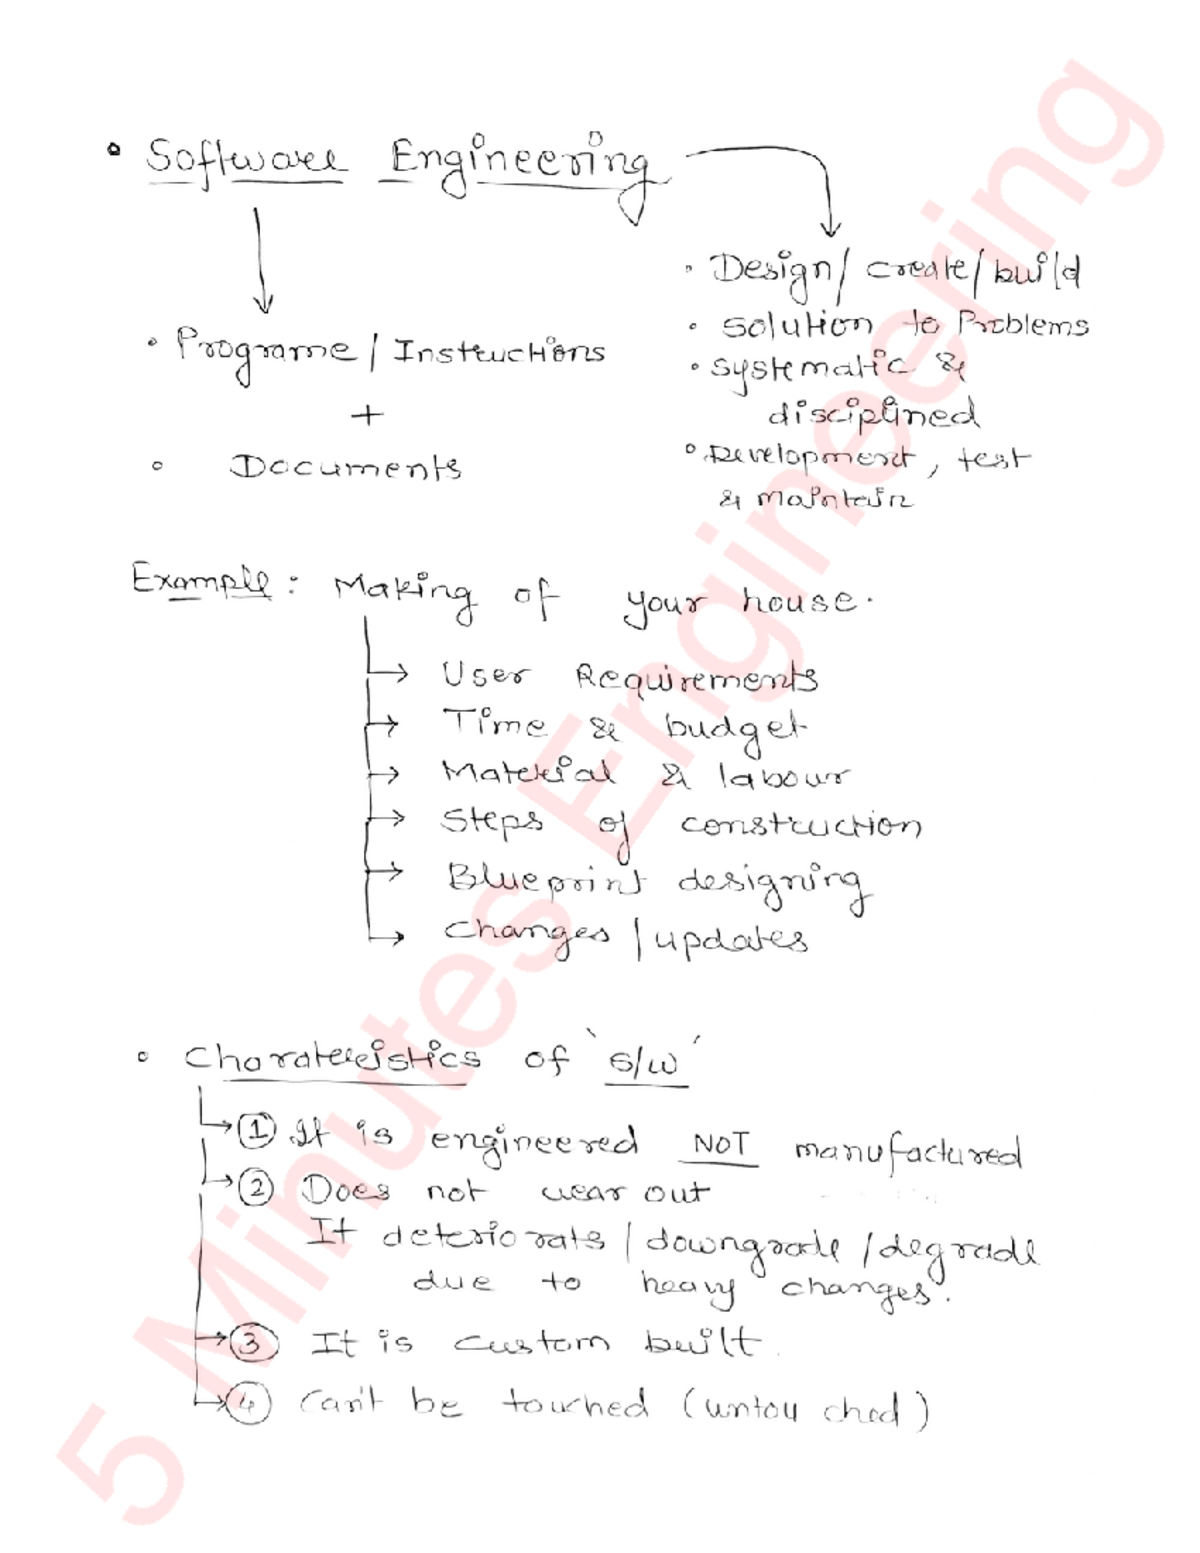 Software Engineering
• Design/ create/ build
• Solution to Problems
• systematic &
disciplined
• Development, test
& maintain
• Programe / Instructions
+
• Documents
Example: Making of your house.
→ User Requirements
→ Time & budget
→ Material & labour
→ Steps of construction
→ Blueprint designing
→ Changes / updates
• Charateristics of 's/w'
→ ① It is engineered NOT manufactured
→ ② Does not wear out
It deteriorats / downgrade / degrade
due to heavy changes.
→ ③ It is custom built.
→ ④ Can't be touched (untouched)
5 Minutes Engineering